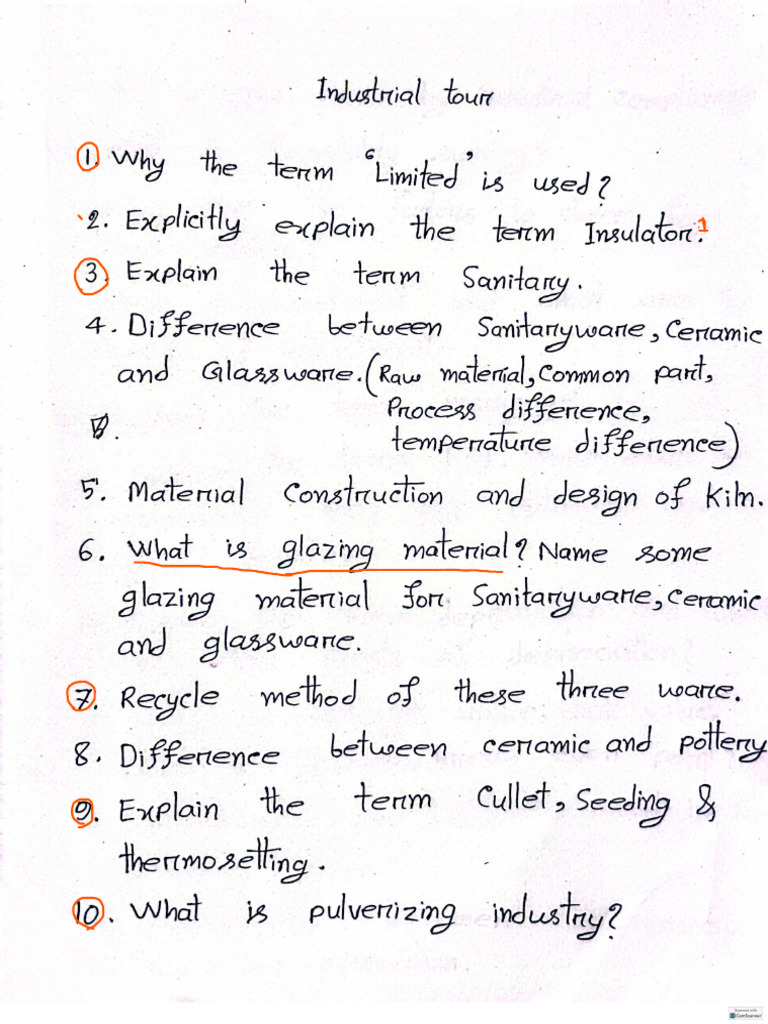 Industrial tour
1. Why the term 'Limited' is used?
2. Explicitly explain the term Insulator. 1
3. Explain the term Sanitary.
4. Difference between Sanitaryware, Ceramic
and Glassware. (Raw material, Common part,
Process difference,
temperature difference)
5. Material Construction and design of Kiln.
6. What is glazing material? Name some
glazing material for Sanitaryware, Ceramic
and glassware.
7. Recycle method of these three ware.
8. Difference between ceramic and pottery
9. Explain the term Cullet, Seeding &
thermosetting.
10. What is pulverizing industry?
Scanned with
CamScanner